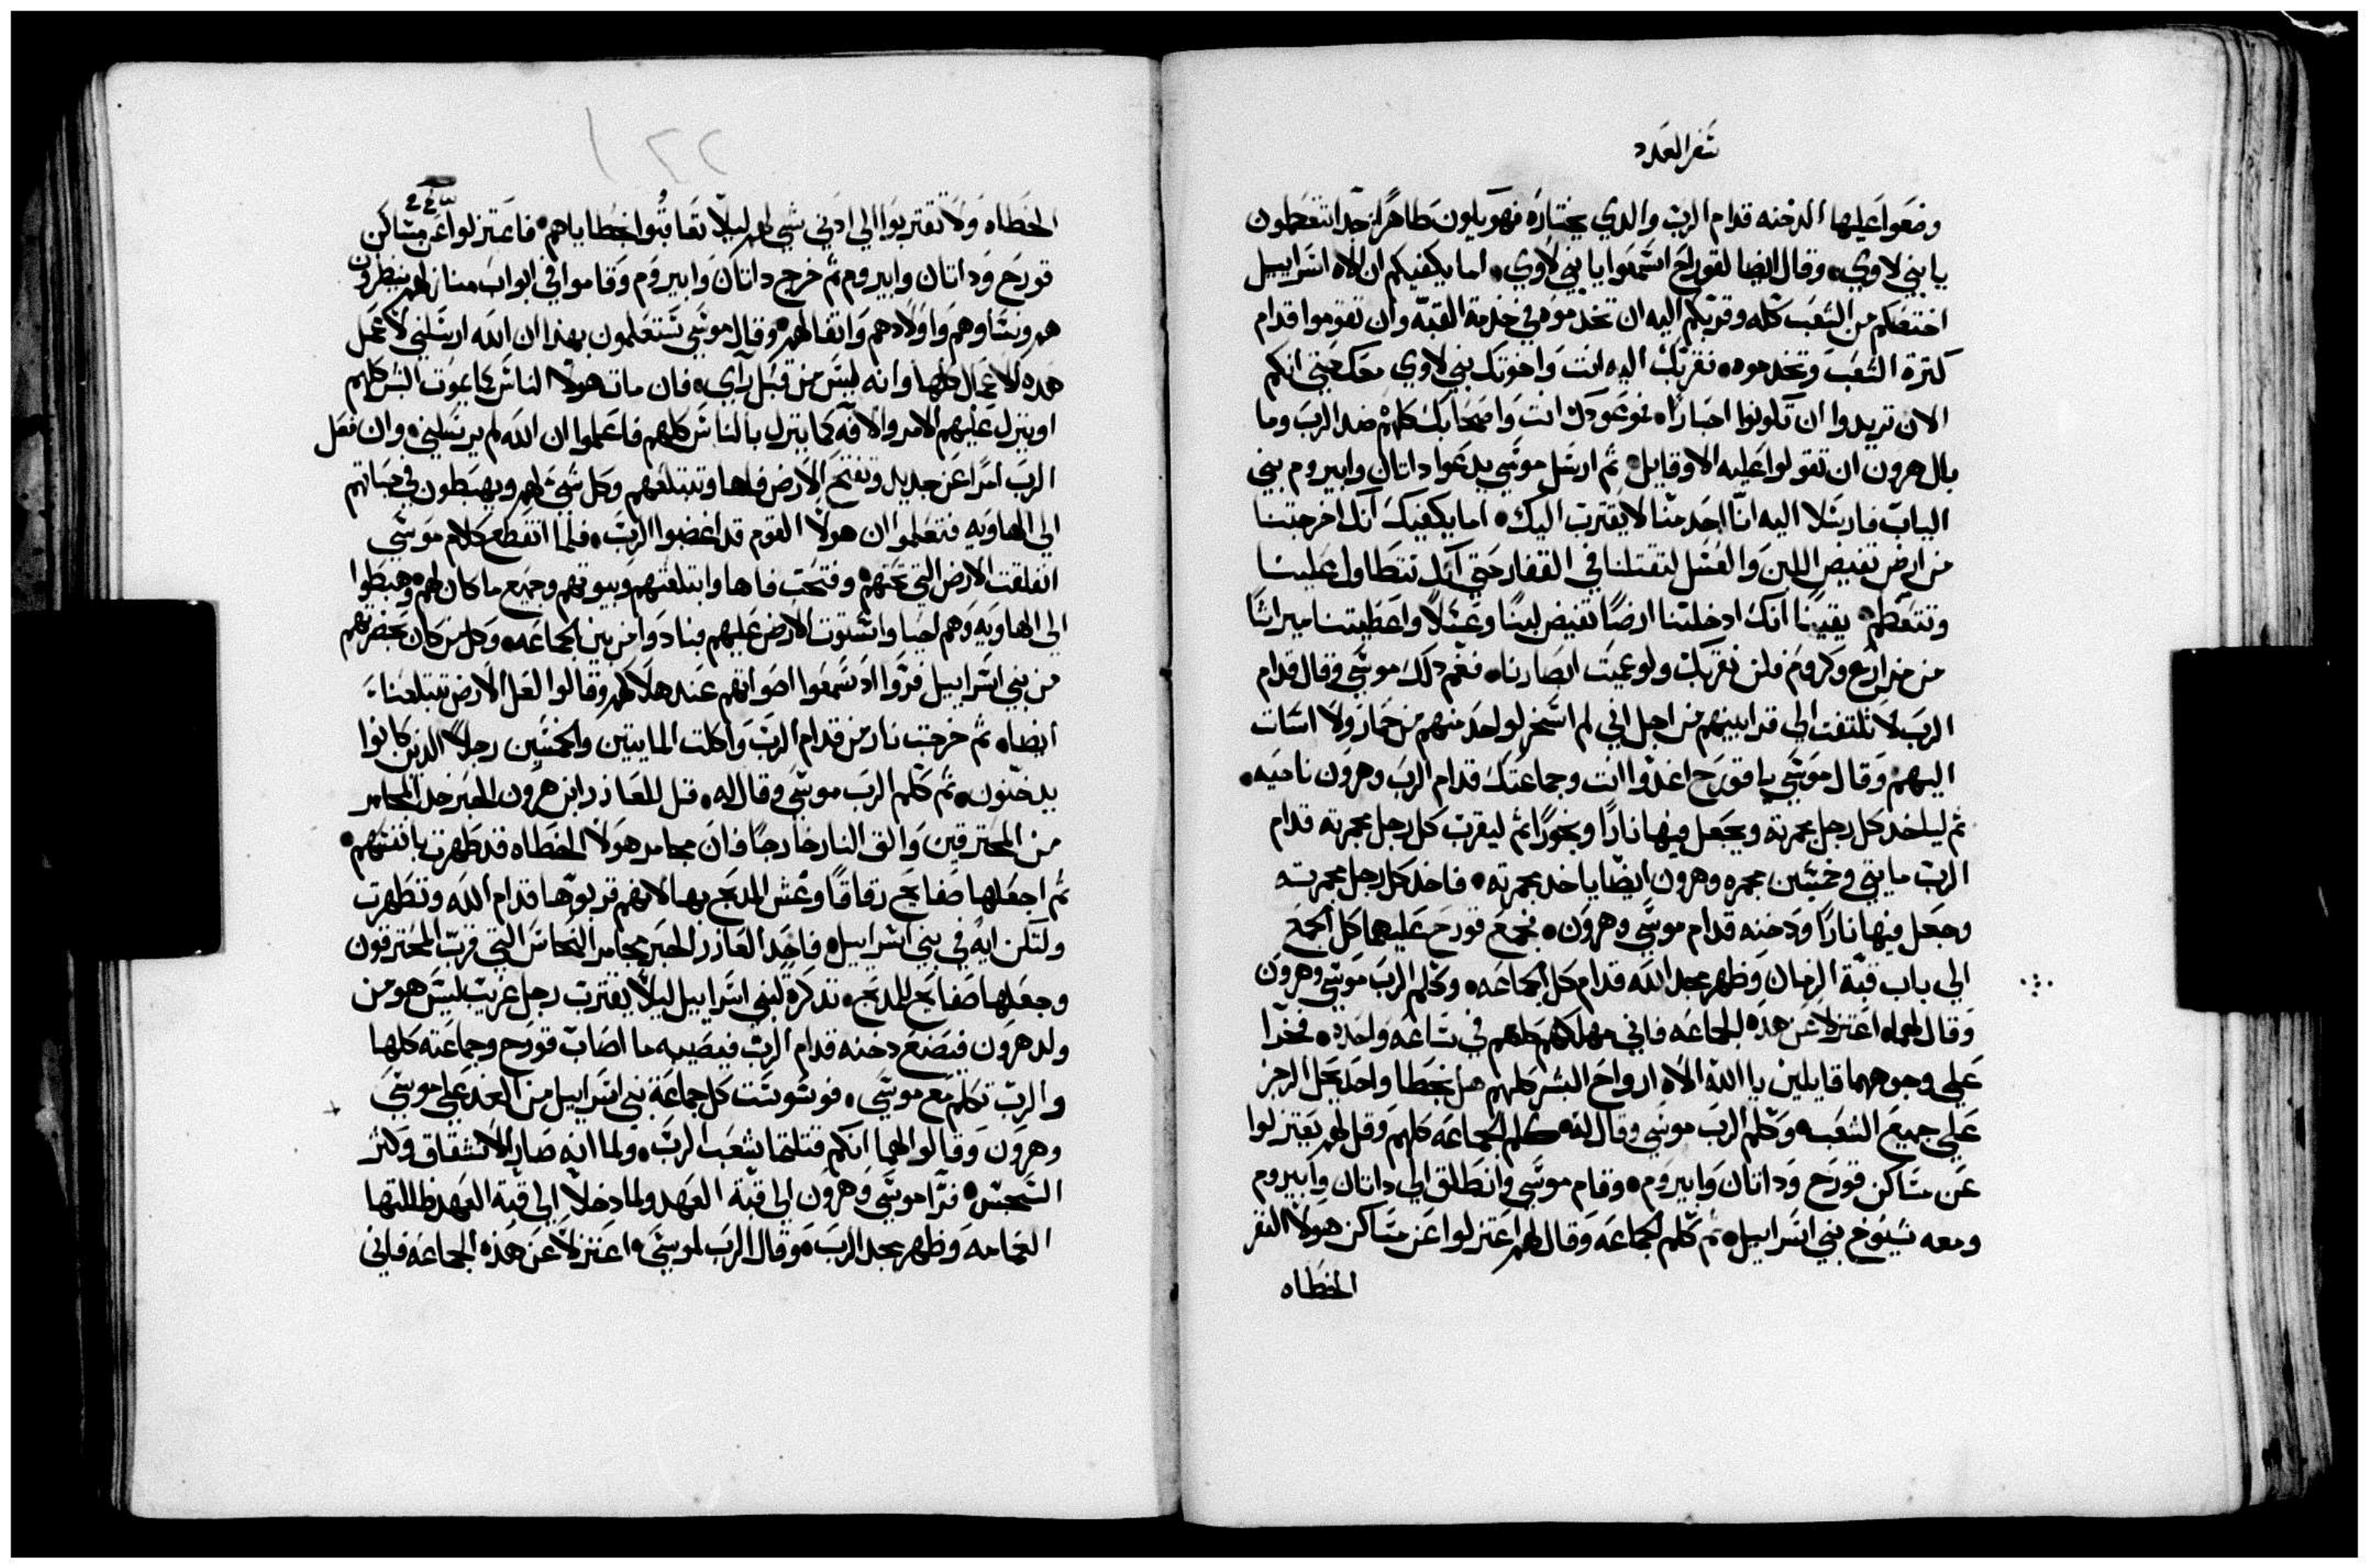 سفر العدد
وضعوا عليها الدخنه قدام الرب والدي يختاره فهو يكون طاهرا جدا تتعظمون
يا بني لاوي وقال ايضا لقورح اسمعوا يا بني لاوي اما يكفيكم ان الاه اسراييل
اختصكم من الشعب كله وقربكم اليه ان تخدموه في خدمة القبه وان تقوموا قدام
كترة الشعب وتخدموه فقربك اليه انت واخوتك بني لاوي معك حتي انكم
الان تريدوا ان تكونوا احبارا انت واصحابك كلهم ضد الرب وما
بال هرون ان تقولوا عليه الاوقايل ثم ارسل موسي يدعوا داتان وابيروم بني
الياب فارسلا اليه انا احد منا لا يقترب اليك اما يكفيك انك اخرجتنا
من ارض تفيض اللبن والعسل لتقتلنا في القفار حتي انك تتطاول علينا
وتتعظم يقينا انك ادخلتنا ارضا تفيض لبنا وعسلا واعطيتنا ميراثا
من مزارع وكروم فلن نقربك ولو عميت ابصارنا فغم دلك موسي وقال قدام
الرب لا تلتفت الي قرابينهم من اجل اني لم اسخر لواحد منهم من حمار ولا اسات
اليهم وقال موسي يا قورح اغدوا انت وجماعتك قدام الرب وهرون ناحيه
ثم لياخد كل رجل مجمرته ويجعل فيها نارا وبخورا ثم ليقرب كل رجل مجمرته قدام
الرب مايتي وخمسين مجمره وهرون ايضا ياخد مجمرته فاخد كل رجل مجمرته
وجعل فيها نارا ودخنه قدام موسي وهرون فجمع قورح عليهما كل الجمع
الي باب قبة الزمان وظهر مجد الله قدام كل الجماعه وكلم الرب موسي وهرون
وقال لهما اعتزلا عن هده الجماعه فاني مهلكهم كلهم في ساعه واحده فخرا
علي وجوههما قايلين يا الله الاه ارواح البشر كلهم هل بخطا واحد يحل الرجز
علي جميع الشعب وكلم الرب موسي وقال له كلم الجماعه كلهم وقل لهم يعتزلوا
عن مساكن قورح وداتان وابيروم وقام موسي وانطلق الي داتان وابيروم
ومعه شيوخ بني اسراييل ثم كلم الجماعه وقال لهم اعتزلوا عن مساكن هولا النفر
الخطاه
الخطاه ولا تقتربوا الي ادني شي لهم ليلا تعاقبوا بخطاياهم فاعتزلوا عن مساكن
قورح وداتان وابيروم ثم خرج داتان وابيروم وقاموا في ابواب منازلهم ينظرون
هم ونساوهم واولادهم واثقالهم وقال موسي ستعلمون بهدا ان الله ارسلني لاعمل
هده الاعمال كلها وانه ليس من قبل راي فان مات هولا الناس كما يموت البشر كلهم
او ينزل عليهم الامر والافه كما ينزل بالناس كلهم فاعلموا ان الله لم يرسلني وان فعل
الرب امرا عن جديد وتفتح الارض فاها وتبتلعهم وكل شي لهم ويهبطون في حياتهم
الي الهاويه فتعلموا ان هولا القوم قد اغضبوا الرب فلما انقطع كلام موسي
انفلقت الارض التي تحتهم وفتحت فاها وابتلعتهم وبيوتهم وجميع ما كان لهم وهبطوا
الي الهاويه وهم احيا واستوت الارض عليهم فبادوا من بين الجماعه وكل من كان بحضرتهم
من بني اسراييل فروا اد سمعوا اصواتهم عند هلاكهم وقالوا لعل الارض تبتلعنا
ايضا ثم خرجت نار من قدام الرب واكلت المايتين والخمسين رجلا الدين كانوا
يدخنون ثم كلم الرب موسي وقال له قل للعازر ابن هرون الحبر خد المجامر
من المحترقين والق النار خارجا فان مجامر هولا الخطاه قد طهرت بانفسهم
ثم اجعلها صفايح رقاقا وغش المدبح بها لانهم قربوها قدام الله وتطهرت
ولتكن ايه في بني اسراييل فاخد العازر الحبر مجامر النحاس التي قرب المحترقون
وجعلها صفايح للمدبح تدكرة لبني اسراييل ليلا يقترب رجل غريب ليس هو من
ولد هرون فيضع دخنه قدام الرب فيصيبه ما اصاب قورح وجماعته كلها
والرب تكلم مع موسي فوسوست كل جماعة بني اسراييل من الغد علي موسي
وهرون وقالوا لهما انكم قتلتما شعب الرب ولما انه صار الانشقاق وكثر
السجس فرا موسي وهرون الي قبة العهد ولما دخلا الي قبة العهد ظللتها
الغمامه وظهر مجد الرب وقال الرب لموسي اعتزلا عن هذه الجماعه فاني